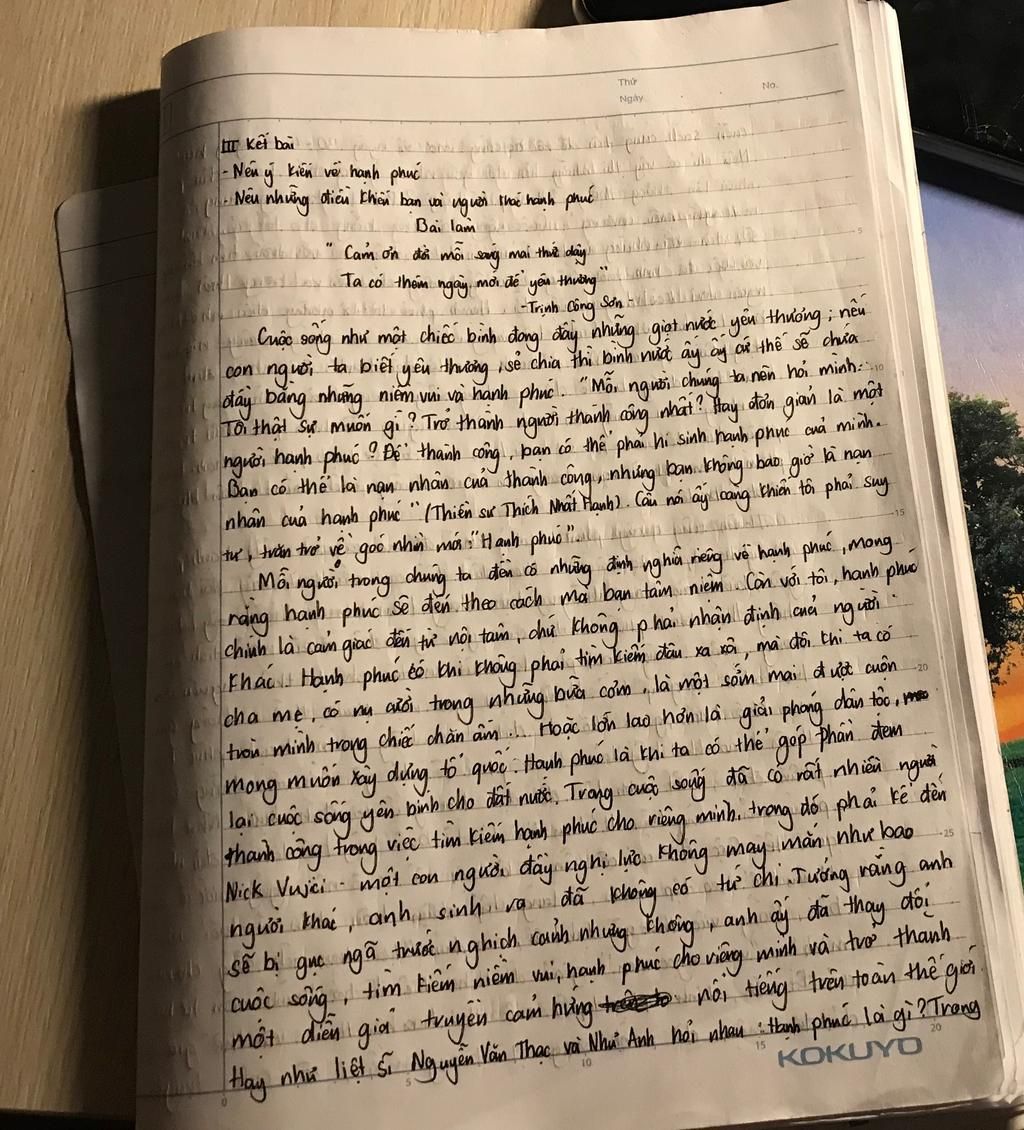 Thứ
Ngày
No.
III Kết bài
- Nêu ý kiến về hạnh phúc
- Nêu những điều khiến bạn và người khác hạnh phúc
Bài làm
"Cảm ơn đời mỗi sáng mai thức dậy
Ta có thêm ngày mới để yêu thương"
- Trịnh Công Sơn -
Cuộc sống như một chiếc bình đong đầy những giọt nước yêu thương; nếu
con người ta biết yêu thương, sẻ chia thì bình nước ấy ấy cứ thế sẽ chứa
đầy bằng những niềm vui và hạnh phúc. "Mỗi người chúng ta nên hỏi mình:
Tôi thật sự muốn gì? Trở thành người thành công nhất? Hay đơn giản là một
người hạnh phúc? Để thành công, bạn có thể phải hi sinh hạnh phúc của mình.
Bạn có thể là nạn nhân của thành công, nhưng bạn không bao giờ là nạn
nhân của hạnh phúc" (Thiền sư Thích Nhất Hạnh). Câu nói ấy càng khiến tôi phải suy
tư, trăn trở về góc nhìn mới: "Hạnh phúc".
Mỗi người trong chúng ta đều có những định nghĩa riêng về hạnh phúc, mong
rằng hạnh phúc sẽ đến theo cách mà bạn tâm niệm. Còn với tôi, hạnh phúc
chính là cảm giác đến từ nội tâm, chứ không phải nhận định của người
khác. Hạnh phúc có khi không phải tìm kiếm đâu xa xôi, mà đôi khi ta có
cha mẹ, có nụ cười trong những bữa cơm, là một sớm mai được cuộn
tròn mình trong chiếc chăn ấm... Hoặc lớn lao hơn là giải phóng dân tộc,
mong muốn xây dựng tổ quốc. Hạnh phúc là khi ta có thể góp phần đem
lại cuộc sống yên bình cho đất nước. Trong cuộc sống đã có rất nhiều người
thành công trong việc tìm kiếm hạnh phúc cho riêng mình. trong đó phải kể đến
Nick Vujici - một con người đầy nghị lực. Không may mắn như bao
người khác, anh sinh ra đã không có tứ chi. Tưởng rằng anh
sẽ bị gục ngã trước nghịch cảnh nhưng không, anh ấy đã thay đổi
cuộc sống, tìm kiếm niềm vui, hạnh phúc cho riêng mình và trở thành
một diễn giả truyền cảm hứng nổi tiếng trên toàn thế giới.
Hay như liệt sĩ Nguyễn Văn Thạc và Như Anh hỏi nhau: Hạnh phúc là gì? Trong
KOKUYO